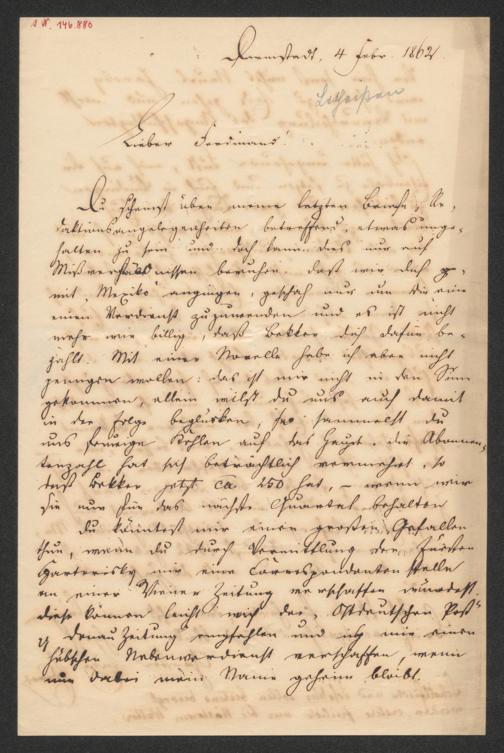 I.N. 146.880
Darmstadt, 4 Febr. 1862.
Lotheißen
Lieber Ferdinand!
Du scheinst über meine letzten Berichte, Re-
daktionsangelegenheiten betreffend, etwas unge-
halten zu sein und doch kann dies nur auf
Mißverständnissen beruhen. Daß wir dich
mit „Mexiko“ angingen, geschah nur um dir
einen Verdienst zuzuwenden und es ist nicht
mehr wie billig, daß Bekker dich dafür be-
zahlt. Mit einer Novelle habe ich aber nicht
wollen: das ist mir nicht in den Sinn
gekommen, allein willst du uns auch damit
in der Folge beglücken, so sammelst du
uns feurige Kohlen auf das Haupt. Die Abonnen-
tenzahl hat sich beträchtlich vermehrt, so
daß Bekker jetzt ca 250 hat, – wenn wir
sie nur für das nächste Quartal behalten
Du könntest mir einen großen Gefallen
thun, wenn du durch Vermittlung des Fürsten
mir eine Correspondentenstelle
an einer Wiener Zeitung verschaffen würdest.
Diese können leicht mich der „Ostdeutschen Post“
„Donau Zeitung“ empfehlen und mir einen
hübschen Nebenverdienst verschaffen, wenn
nur dabei mein Name geheim bleibt.